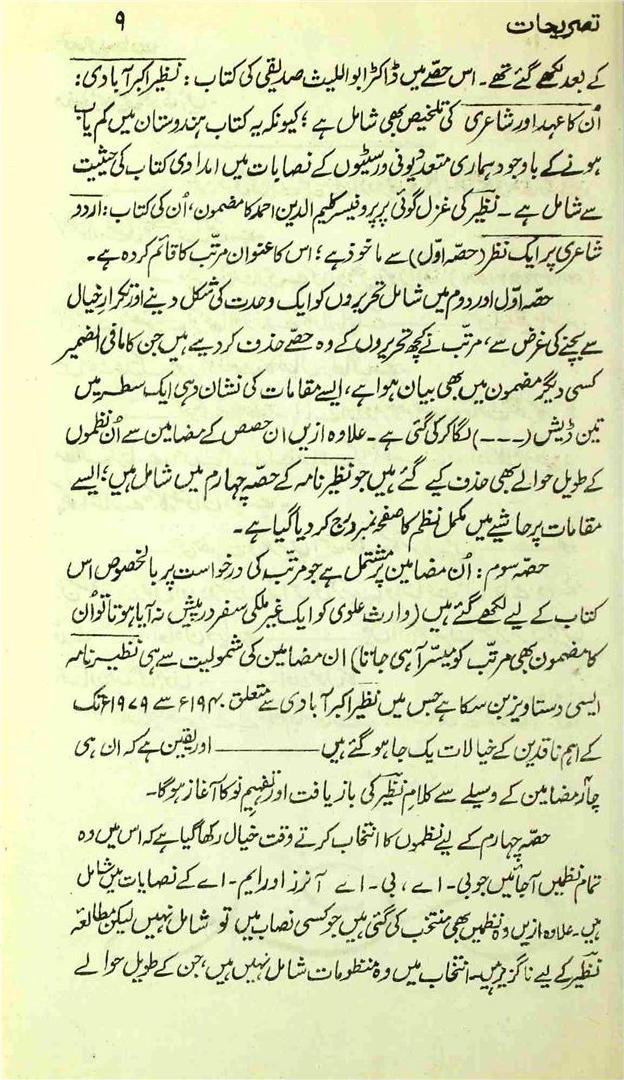 تصریحات ۹
کے بعد لکھے گئے تھے۔ اس حصّے میں ڈاکٹر ابواللیث صدیقی کی کتاب: نظیر اکبر آبادی:
اُن کا عہد اور شاعری کی تلخیص بھی شامل ہے؛ کیونکہ یہ کتاب ہندوستان میں کم یاب
ہونے کے باوجود ہماری متعدد یونی ورسٹیوں کے نصابات میں امدادی کتاب کی حیثیت
سے شامل ہے۔ نظیر کی غزل گوئی پر پروفیسر کلیم الدین احمد کا مضمون، اُن کی کتاب: اردو
شاعری پر ایک نظر (حصّہ اوّل) سے ماخوذ ہے؛ اس کا عنوان مرتّب کا قائم کردہ ہے۔
حصّہ اوّل اور دوم میں شامل تحریروں کو ایک وحدت کی شکل دینے اور تکرارِ خیال
سے بچنے کی غرض سے، مرتّب نے کچھ تحریروں کے وہ حصّے حذف کر دیے ہیں جن کا مافی الضمیر
کسی دیگر مضمون میں بھی بیان ہوا ہے، ایسے مقامات کی نشان دہی ایک سطر میں
تین ڈیش (---) لگا کر کی گئی ہے۔ علاوہ ازیں ان حصص کے مضامین سے اُن نظموں
کے طویل حوالے بھی حذف کیے گئے ہیں جو نظیر نامہ کے حصّہ چہارم میں شامل ہیں؛ ایسے
مقامات پر حاشیے میں مکمل نظم کا صفحہ نمبر درج کر دیا گیا ہے۔
حصّہ سوم: اُن مضامین پر مشتمل ہے جو مرتّب کی درخواست پر بالخصوص اس
کتاب کے لیے لکھے گئے ہیں (وارث علوی کو ایک غیر ملکی سفر درپیش نہ آیا ہوتا تو اُن
کا مضمون بھی مرتّب کو میسّر آ ہی جاتا) ان مضامین کی شمولیت سے ہی نظیر نامہ
ایسی دستاویز بن سکا ہے جس میں نظیر اکبر آبادی سے متعلق ۱۹۴۰ء سے ۱۹۷۹ء تک
کے اہم ناقدین کے خیالات یک جا ہو گئے ہیں ——— اور یقین ہے کہ ان ہی
چار مضامین کے وسیلے سے کلامِ نظیر کی بازیافت اور تفہیمِ نو کا آغاز ہوگا۔
حصّہ چہارم کے لیے نظموں کا انتخاب کرتے وقت خیال رکھا گیا ہے کہ اس میں وہ
تمام نظمیں آجائیں جو بی۔اے، بی۔اے آنرز اور ایم۔اے کے نصابات میں شامل
ہیں۔ علاوہ ازیں وہ نظمیں بھی منتخب کی گئی ہیں جو کسی نصاب میں تو شامل نہیں لیکن مطالعۂ
نظیر کے لیے ناگزیر ہیں۔ انتخاب میں وہ منظومات شامل نہیں ہیں، جن کے طویل حوالے